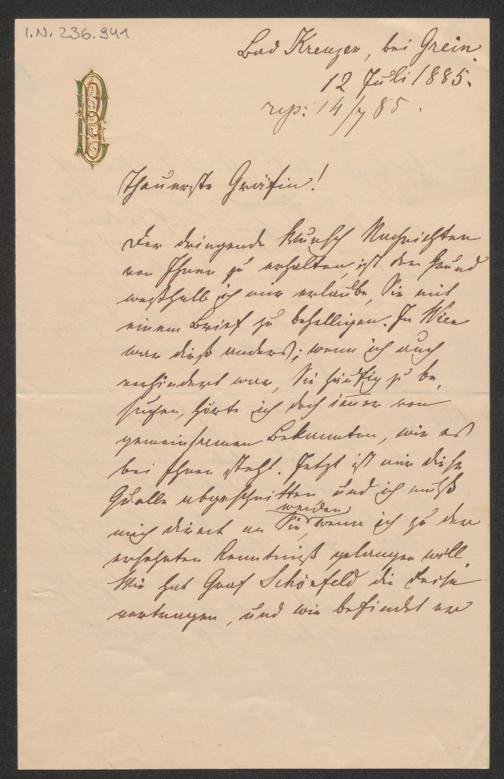 I.N. 236.941
Bad Kreuzen, bei Grein
12 Juli 1885.
rep: 14/7 85.
Theuerste Gräfin!
Der dringende Wunsch Nachrichten
von Ihnen zu erhalten, ist der Grund
weßhalb ich mir erlaube, Sie mit
einem Brief zu behelligen. In Wien
war dieß anders; wenn ich auch
verhindert war, Sie häufig zu be,
suchen, hörte ich doch immer von
gemeinsamen Bekannten, wie es
bei Ihnen steht. Jetzt ist mir diese
Quelle abgeschnitten und ich muß
mich direct an Sie wenden wenn ich zu der
ersehnten Kenntniß gelangen will.
Wie hat Graf Schönfeld die Reise
vertragen, und wie befindet er